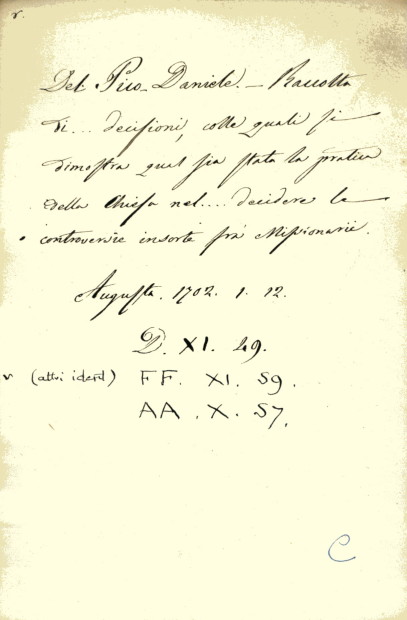 v.
Del Pico Daniele. — Raccolta
di... decisioni, colle quali si
dimostra qual sia stata la pratica
della Chiesa nel.... decidere le
controversie insorte frà Missionarii.
Augusta. 1702. 1. 12.
D. XI. 49.
v (altri idem) FF. XI. 59.
AA. X. 57.
C